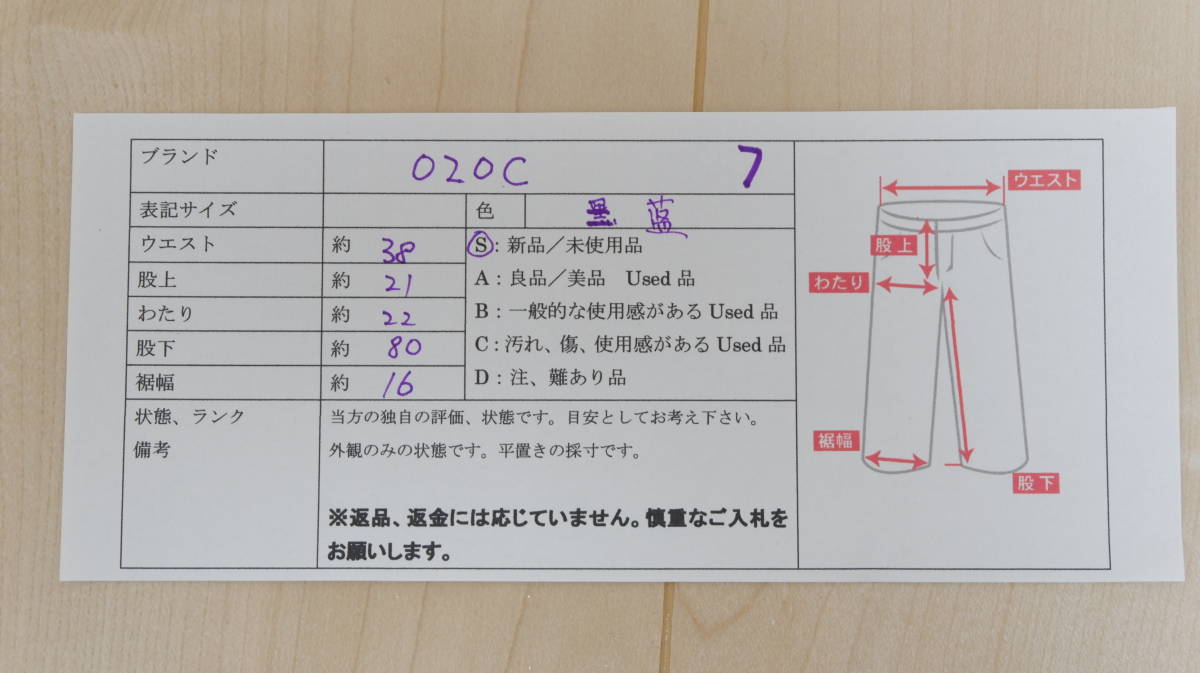 ブランド 020C 7
表記サイズ 色 黒 藍
ウエスト 約 38
股上 約 21
わたり 約 22
股下 約 80
裾幅 約 16
S：新品／未使用品
A：良品／美品　Used 品
B：一般的な使用感がある Used 品
C：汚れ、傷、使用感がある Used 品
D：注、難あり品
状態、ランク
備考
当方の独自の評価、状態です。目安としてお考え下さい。
外観のみの状態です。平置きの採寸です。
※返品、返金には応じていません。慎重なご入札を
お願いします。
ウエスト
股上
わたり
裾幅
股下